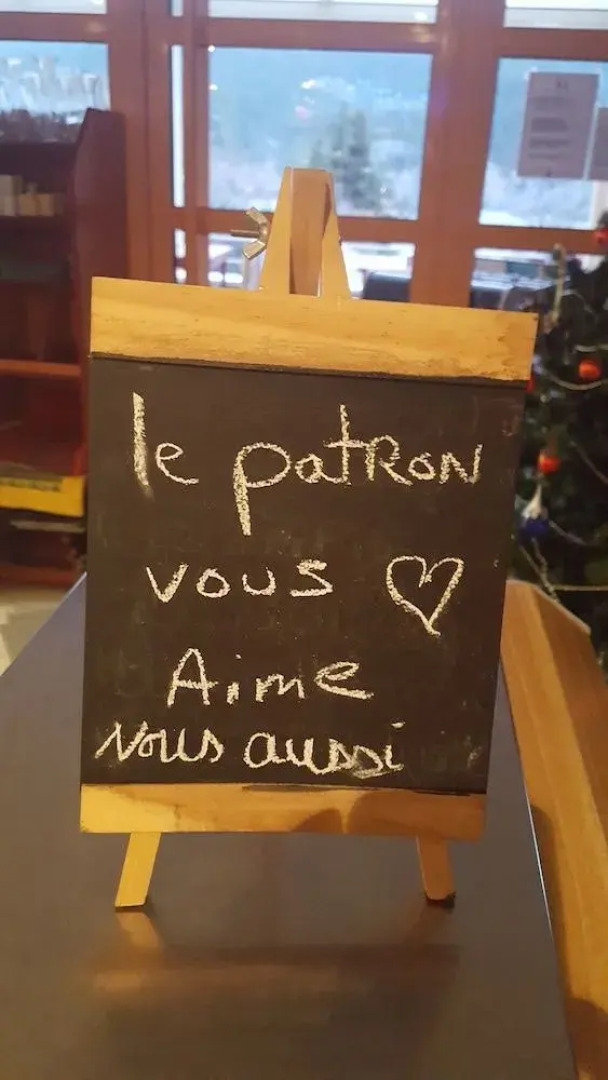 le patRoN
vous ♡
Aime
Nous aussi